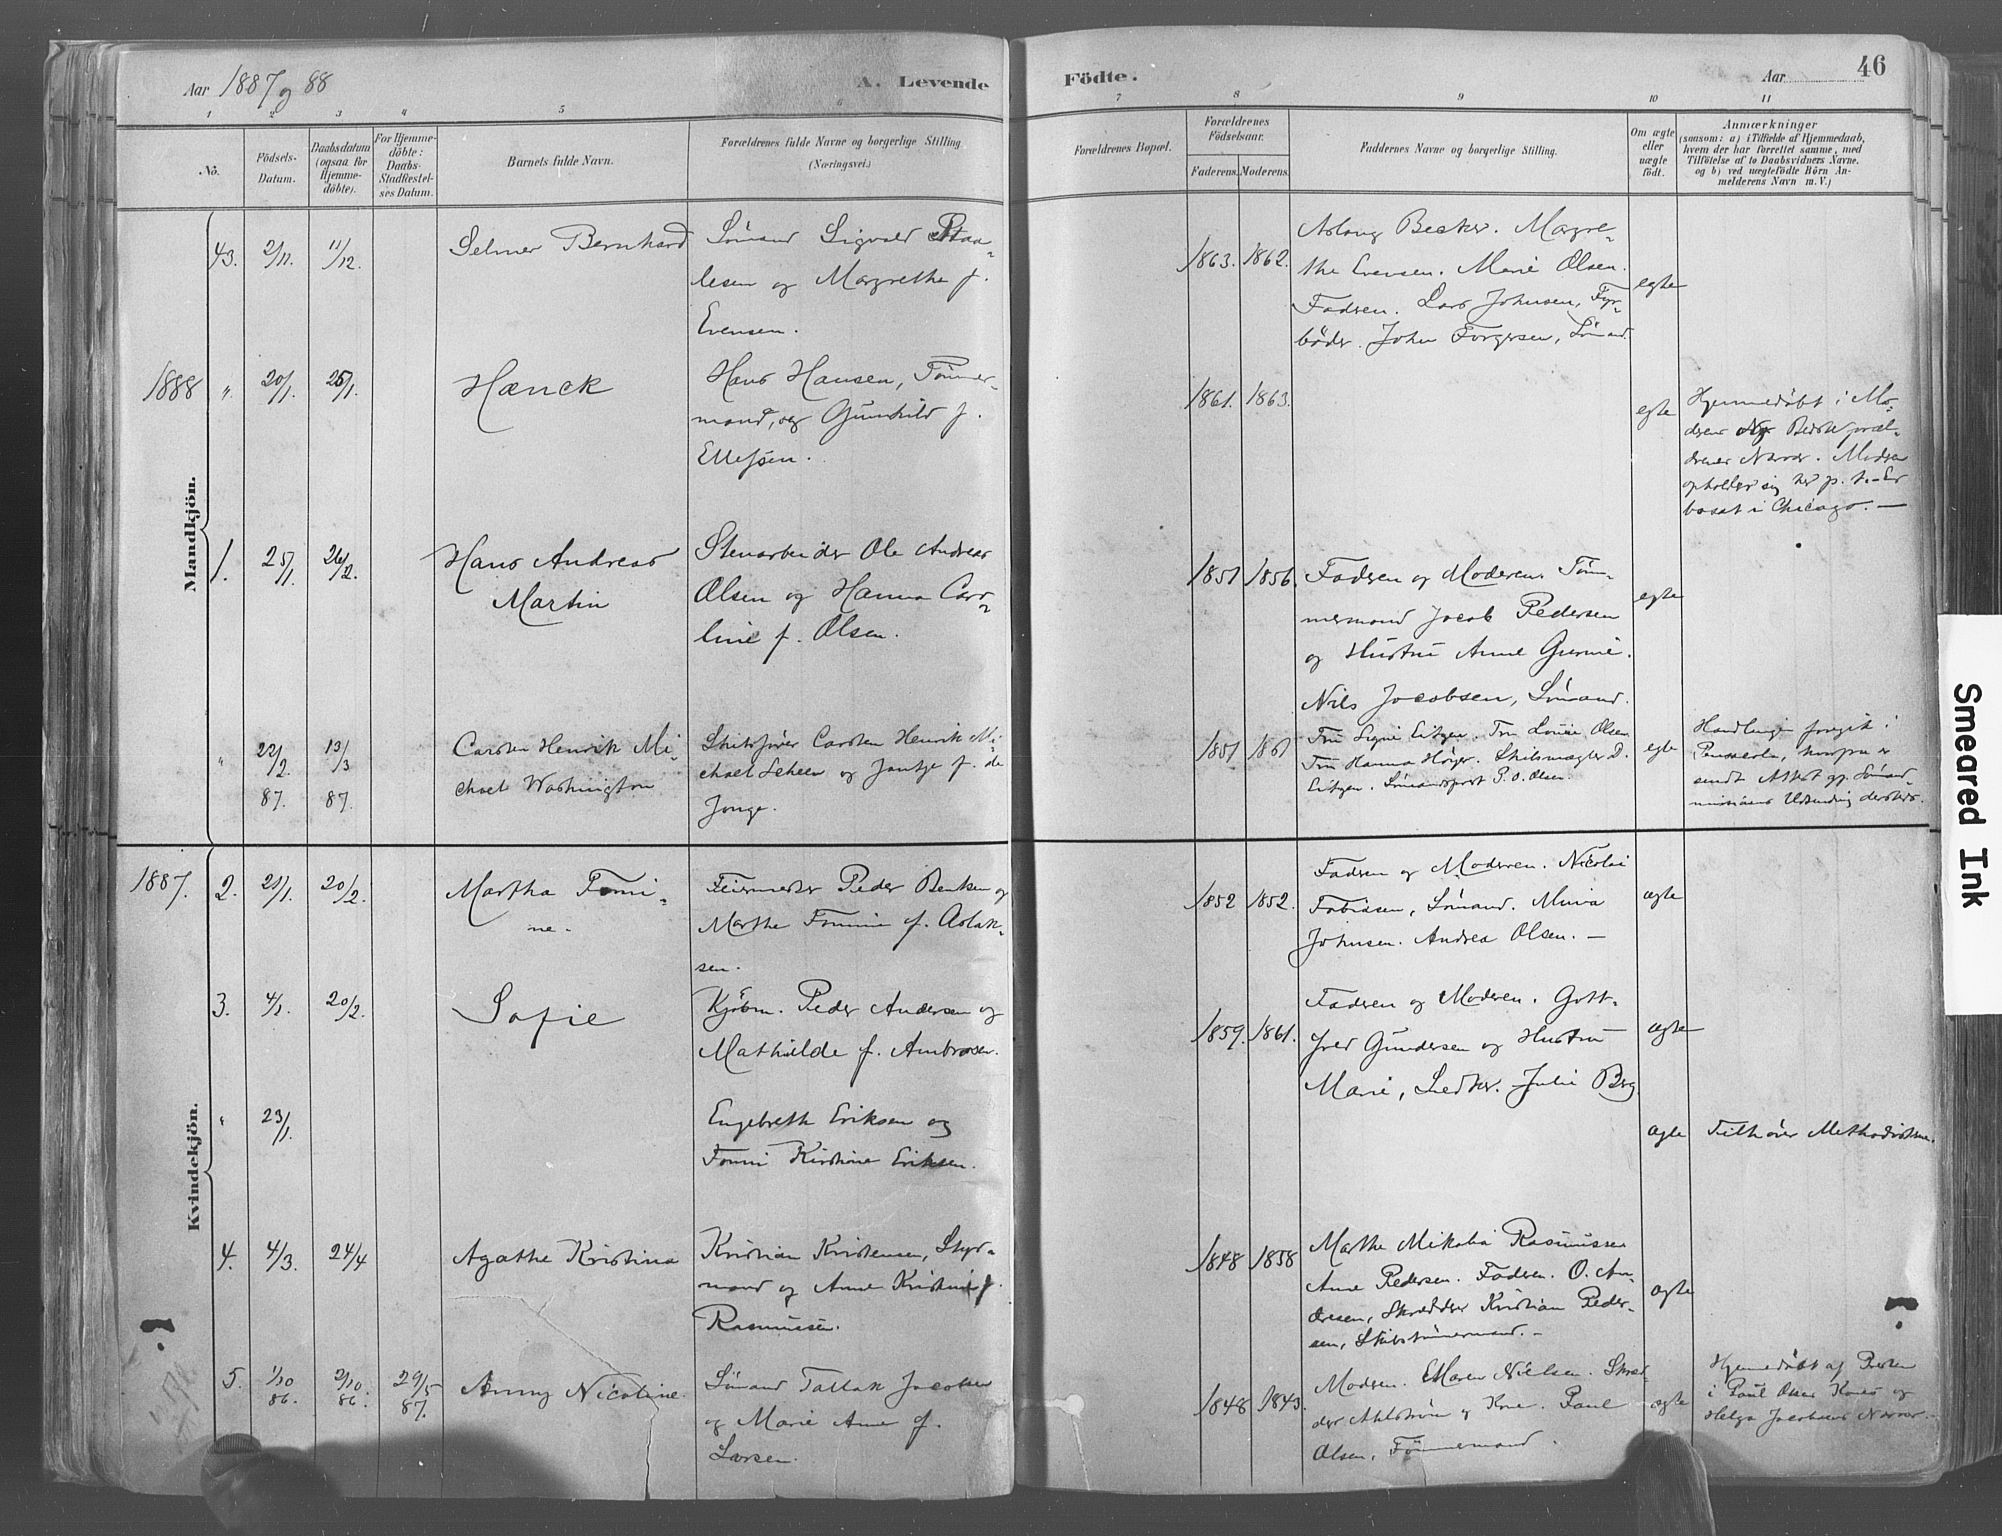 Aar 1887 og 88
A. Levende
Födte.
Aar
46
1 2 3 4 5 6 7 8 9 10 11
No.
Födsels-
Datum.
Daabsdatum
(ogsaa for
Hjemme-
döbte).
For Hjemme-
döbte:
Daabs-
Stadfæstel-
ses Datum.
Barnets fulde Navn.
Forældrenes fulde Navne og borgerlige Stilling
(Næringsvei.)
Forældrenes Bopæl.
Forældrenes
Födselsaar.
Faderens. Moderens.
Faddernes Navne og borgerlige Stilling.
Om ægte
eller
uægte
födt.
Anmærkninger
(saasom: a) i Tilfælde af Hjemmedaab,
hvem der har forrettet samme, med
Tilföielse af to Daabsvidners Navne.
og b) ved uægtefödte Börn An-
melderens Navn m. V.)
Mandkjön.
43. 2/11. 11/12.
Selmer Bernhard
Sömand Sigvald Staa-
lesen og Margrethe f.
Evensen.
1863. 1862.
Aslaug Becker. Magre-
the Evensen. Marie Olsen.
Faderen. Lars Johnsen, Fyr-
böder. John Torgersen, Sömand.
egte
1888 " 20/1. 25/1.
Hænck
Hans Hansen, Tömmer-
mand, og Gunhild f.
Ellefsen.
1861. 1863.
egte
Hjemmedöbt i Mo-
deren Bedstforæl-
drenes Nærvær. Moderen
opholder sig her p. t. - Er
bosat i Chicago. —
1. 25/1. 26/2.
Hans Andreas
Martin
Stenarbeider Ole Andreas
Olsen og Hanna Caro-
line f. Olsen.
1851 1856.
Faderen og Moderen. Töm-
mermand Jacob Pedersen
og Hustru Anne Gurine.
Nils Jacobsen, Sömand.
egte
" 22/2. 87. 13/3 87.
Carsten Henrik Mi-
chael Washington
Skibsförer Carsten Henrik Mi-
chael Scheen og Jantje f. de
Jonge.
1857 1861
Fru Signe Eitzen. Fru Louise Olsen
Fru Hanna Höyer. Skibsmægler D.
Eitzen. Sömandspræst P. O. Olsen.
egte
Handlingen foregik i
Pensacola, hvorpaa er
sendt Attest gj. Sömand-
missionens Udsending dersteds.
Kvindekjön.
1887. 2. 21/1. 20/2.
Martha Tomi-
ne.
Feiermester Peder Bentsen og
Marthe Tomine f. Aslak-
sen.
1852 1852.
Faderen og Moderen. Nicolai
Tobiasen, Sömand. Minia
Johnsen. Andrea Olsen. —
ægte
3. 4/2. 20/2.
Sofie
Kjöbm. Peder Andersen og
Mathilde f. Ambrosen.
1859. 1861.
Faderen og Moderen. Gott-
fred Gundersen og Hustru
Marie, Sædker. Julie Berg
ægte
" 23/1.
Engebreth Eriksen og
Tomi Kirstine Eriksen.
ægte
Tilhörer Methodisterne.
4. 4/3. 24/4
Agathe Kristina
Kristian Kristensen, Styr-
mand og Anne Kristine f.
Rasmussen.
1848 1858
Marthe Mikalia Rasmussen
Anne Pedersen. Faderen. O. An-
dresen, Skrædder Kristian Peder-
sen, Skibstömmermand. -
ægte
5. 1/10 86. 2/10. 86. 29/5 87.
Anny Nicoline.
Sömand Tallak Jacobsen
og Marie Anne f.
Larsen.
1848 1843.
Moderen. Maren Nielsen. Skræd-
der Ahlström og Kone. Paul
Olsen, Tömmermand.
ægte
Hjemmedöbt af Præsten
i Paul Olsens Kones og
Helga Jacobsens Nærvær.
Smeared Ink